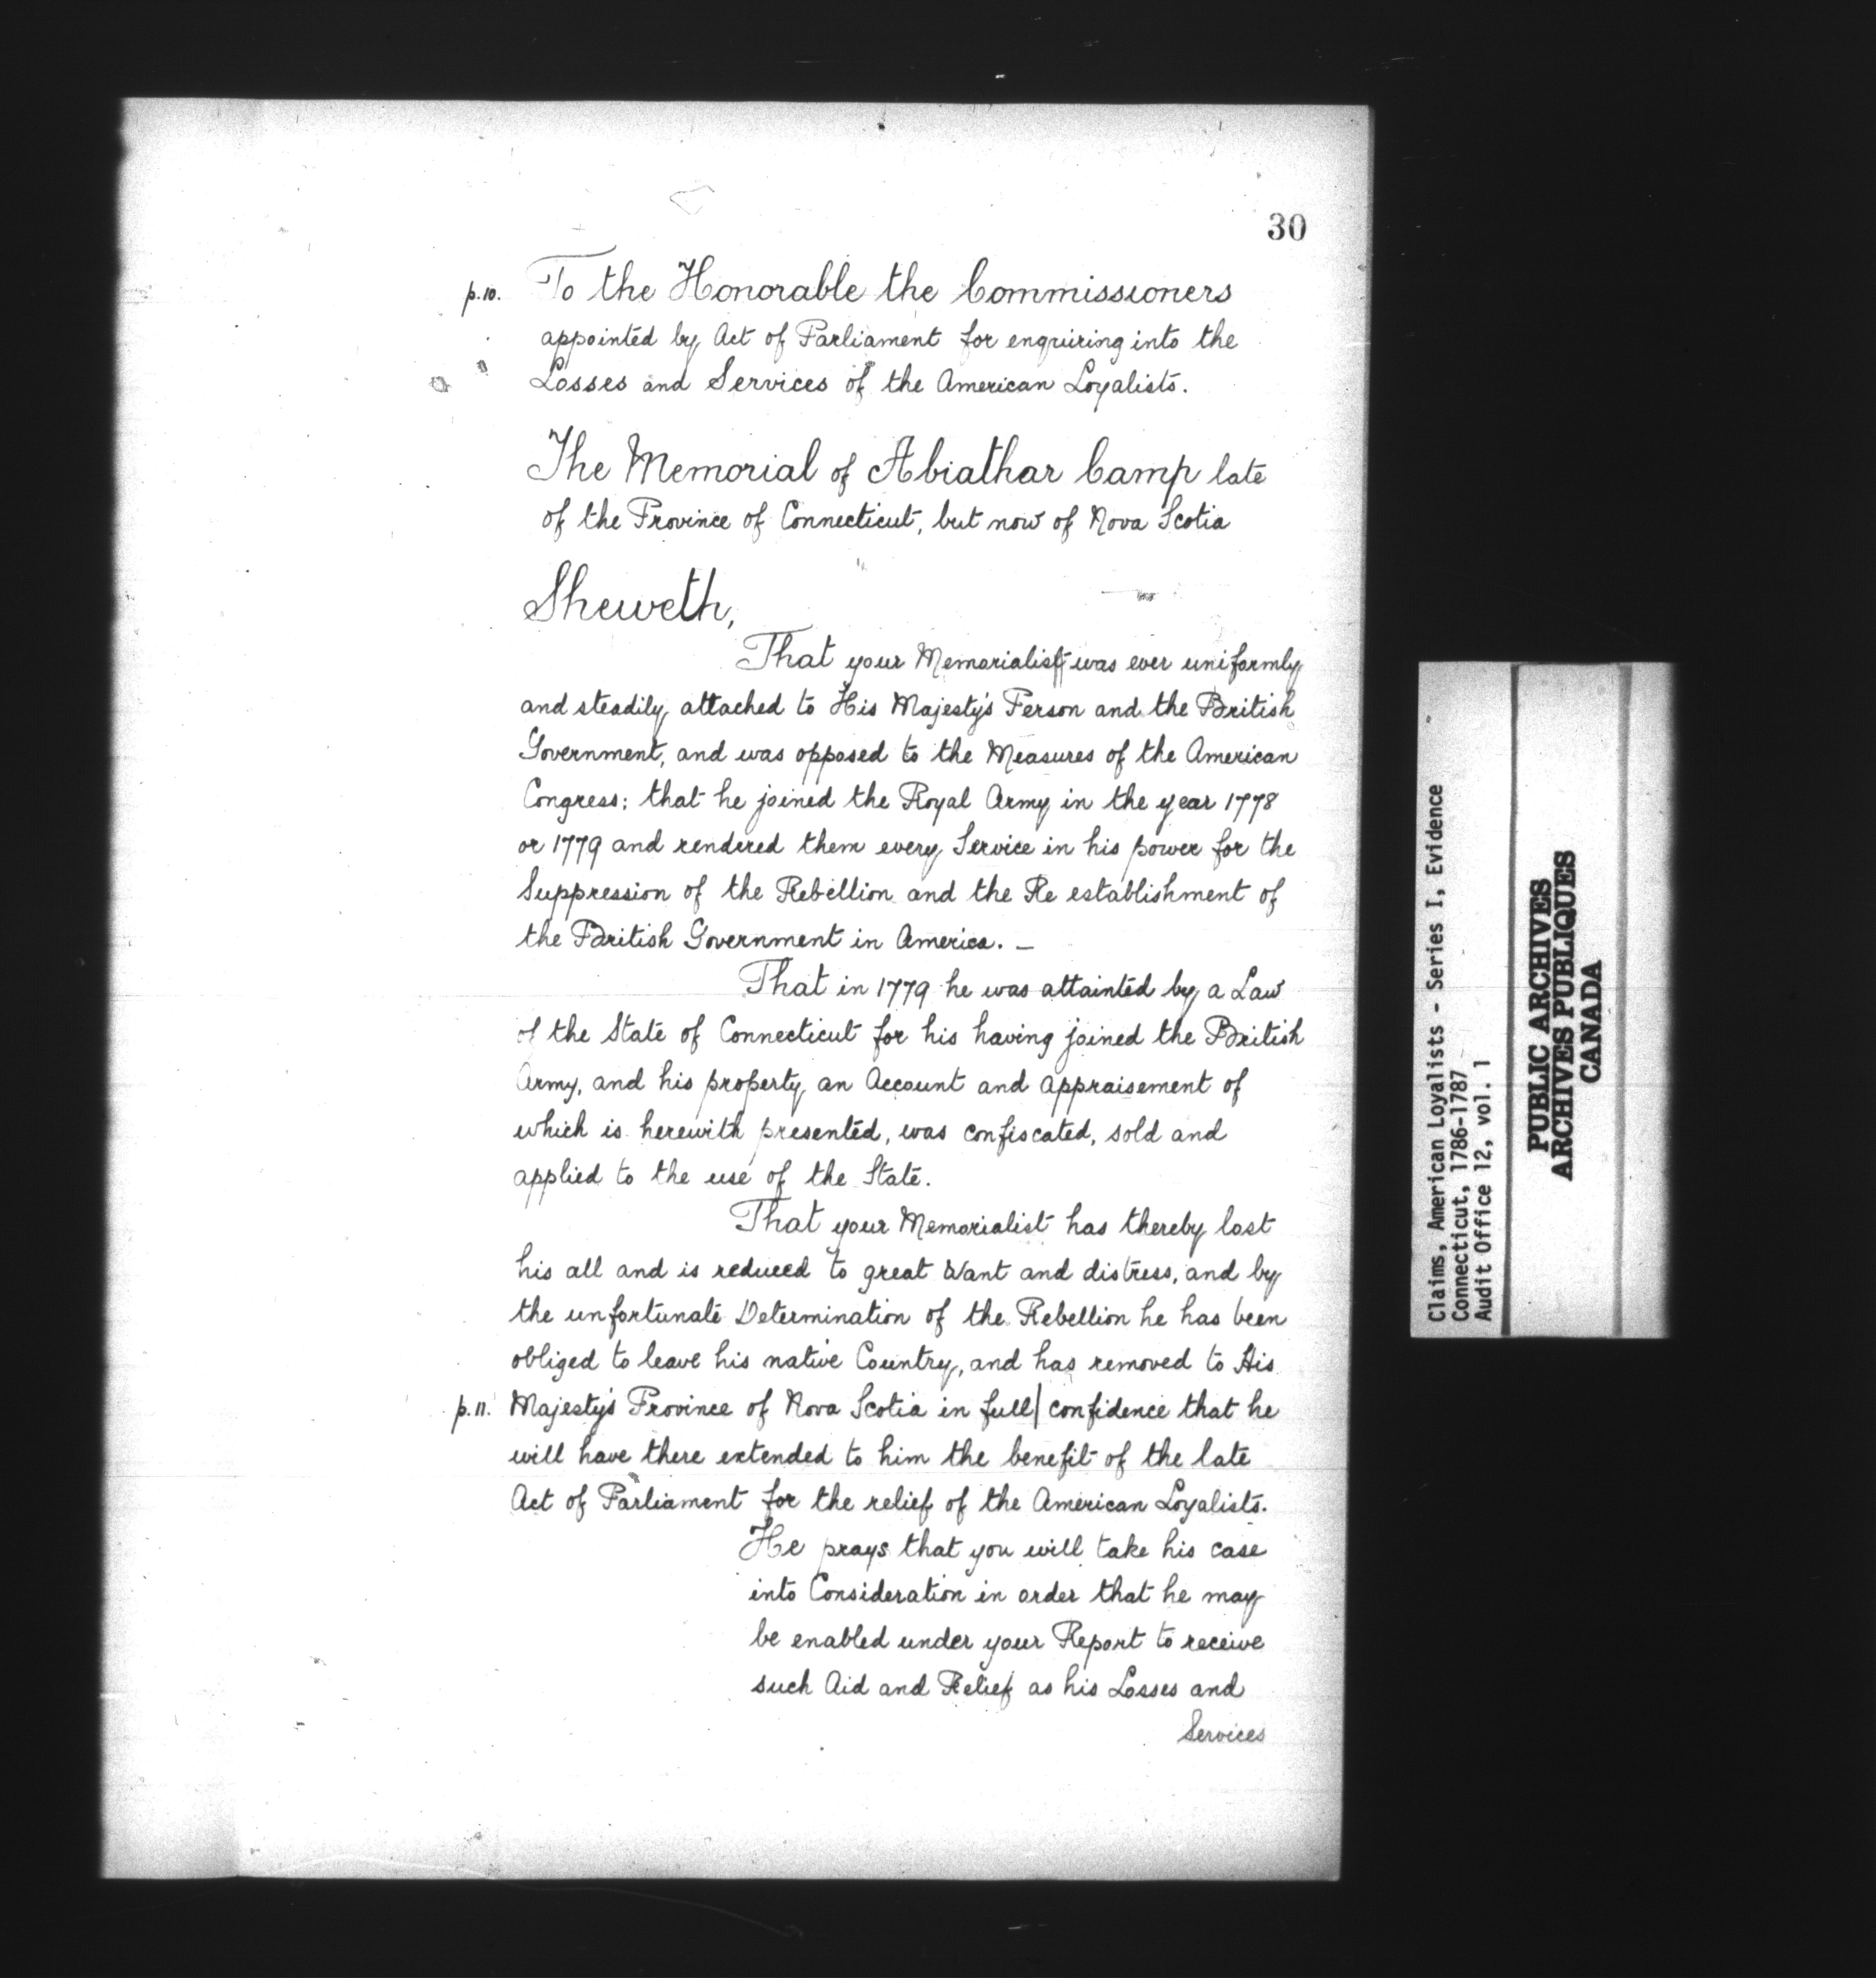 30
p.10. To the Honorable the Commissioners
appointed by Act of Parliament for enquiring into the
Losses and Services of the American Loyalists.
The Memorial of Abiathar Camp late
of the Province of Connecticut, but now of Nova Scotia
Sheweth,
That your Memorialist was ever uniformly
and steadily attached to His Majesty's Person and the British
Government, and was opposed to the Measures of the American
Congress; that he joined the Royal Army in the year 1778
or 1779 and rendered them every Service in his power for the
Suppression of the Rebellion and the Re establishment of
the British Government in America. —
That in 1779 he was attainted by a Law
of the State of Connecticut for his having joined the British
Army, and his property an Account and appraisement of
which is herewith presented, was confiscated, sold and
applied to the use of the State.
That your Memorialist has thereby lost
his all and is reduced to great Want and distress, and by
the unfortunate Determination of the Rebellion he has been
obliged to leave his native Country, and has removed to His
p.11. Majesty's Province of Nova Scotia in full/ confidence that he
will have there extended to him the benefit of the late
Act of Parliament for the relief of the American Loyalists.
He prays that you will take his case
into Consideration in order that he may
be enabled under your Report to receive
such Aid and Relief as his Losses and
Services
Claims, American Loyalists - Series I, Evidence
Connecticut, 1786-1787
Audit Office 12, vol. 1
PUBLIC ARCHIVES
ARCHIVES PUBLIQUES
CANADA